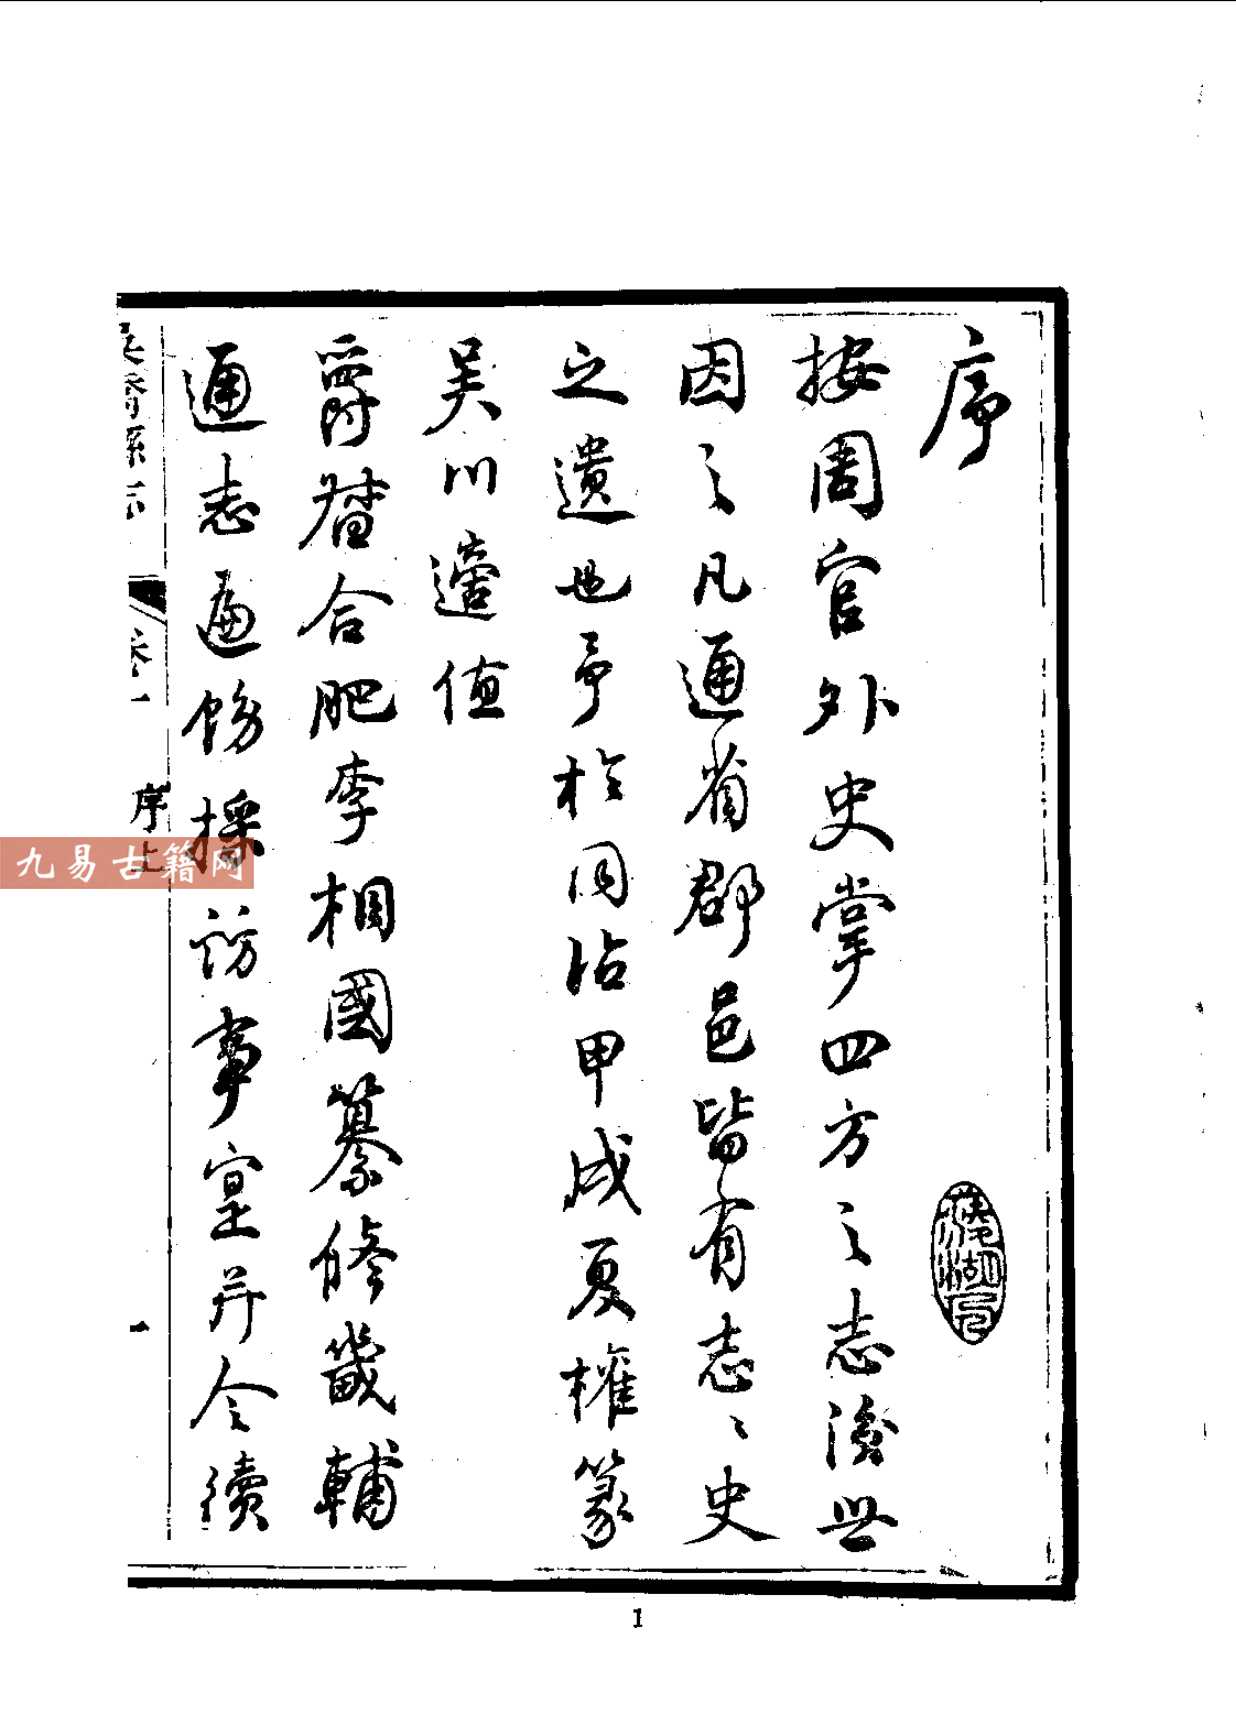 序
按周官外史掌四方之志後世
因之凡通省郡邑皆有志〻史
之遺也予於同治甲戌夏權篆
吳川適值
爵督合肥李相國纂修畿輔
通志遍飭採訪事宜并令續
吳橋縣志 卷一 序上 一
九易古籍网
1